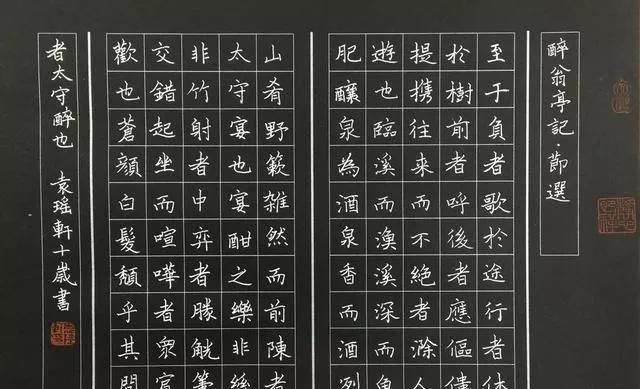 醉翁亭記·節選
至于負者歌於途行者休
於樹前者呼後者應傴僂
提携往來而不絕者滁人
遊也臨溪而漁溪深而魚
肥釀泉為酒泉香而酒洌
山肴野簌雜然而前陳者
太守宴也宴酣之樂非絲
非竹射者中弈者勝觥籌
交錯起坐而喧嘩者眾賓
歡也蒼顏白髮頹乎其間
者太守醉也 袁瑤軒十歲書